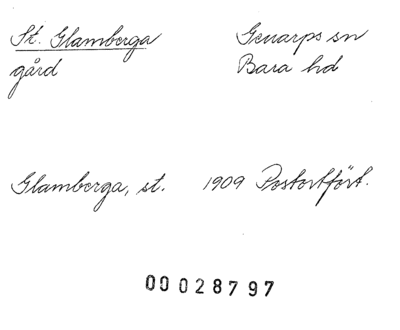 St. Glamberga
gård
Genarps sn
Bara hd
Glamberga, st. 1909 Postortfört.
00028797